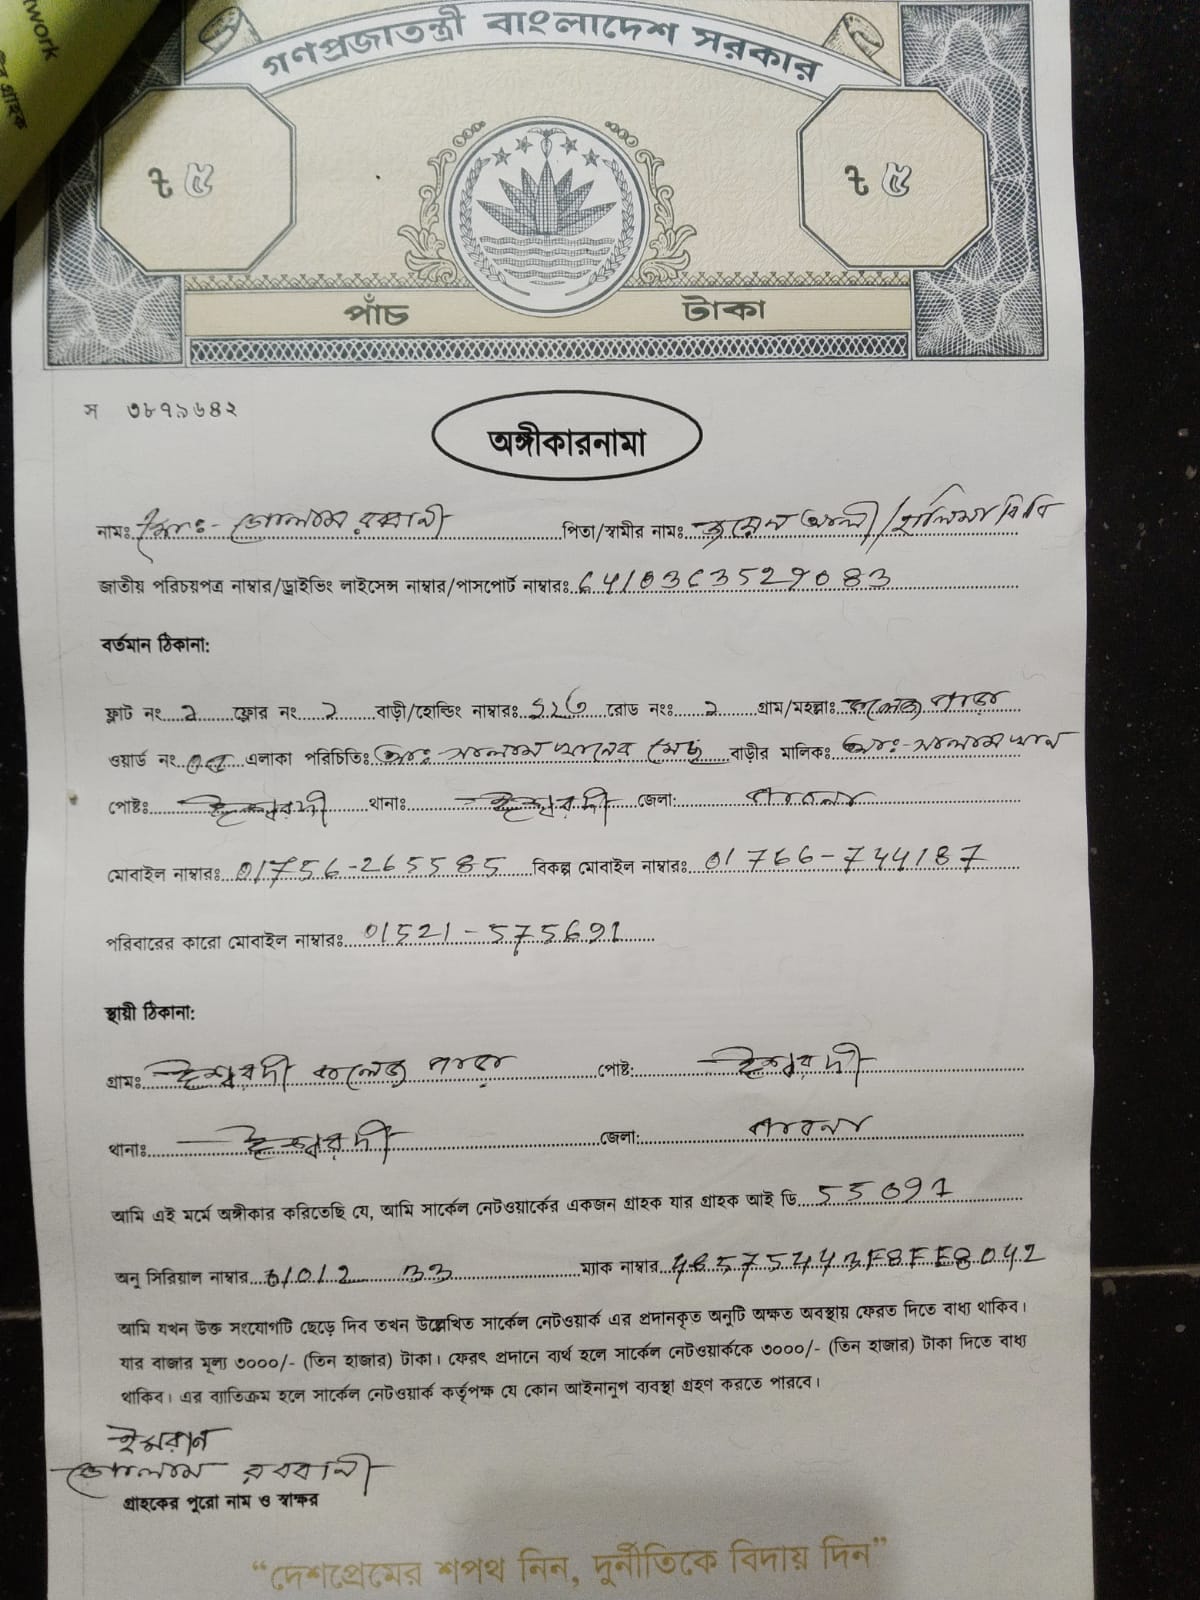 twork
র গ্রাহক
গণপ্রজাতন্ত্রী বাংলাদেশ সরকার
৳ ৫ ৳ ৫
পাঁচ টাকা
স ৩৮৭৯৬৪২
অঙ্গীকারনামা
নামঃ মোঃ- গোলাম রব্বানী পিতা/স্বামীর নামঃ আলী/হালিমা বিবি
জাতীয় পরিচয়পত্র নাম্বার/ড্রাইভিং লাইসেন্স নাম্বার/পাসপোর্ট নাম্বারঃ
বর্তমান ঠিকানা:
ফ্লাট নং ২ ফ্লোর নং ২ বাড়ী/হোল্ডিং নাম্বারঃ রোড নংঃ ২ গ্রাম/মহল্লাঃ কলেজ পাড়া
ওয়ার্ড নং এলাকা পরিচিতিঃ মোঃ- সালাম খানের মেছ বাড়ীর মালিকঃ মোঃ- সালাম খান
পোষ্টঃ ঈশ্বরদী থানাঃ ঈশ্বরদী জেলা: পাবনা
মোবাইল নাম্বারঃ 01756-265585 বিকল্প মোবাইল নাম্বারঃ 01766-744187
পরিবারের কারো মোবাইল নাম্বারঃ 01521-575691
স্থায়ী ঠিকানা:
গ্রামঃ ঈশ্বরদী কলেজ পাড়া পোষ্ট: ঈশ্বরদী
থানাঃ ঈশ্বরদী জেলা: পাবনা
আমি এই মর্মে অঙ্গীকার করিতেছি যে, আমি সার্কেল নেটওয়ার্কের একজন গ্রাহক যার গ্রাহক আই ডি 55091
অনু সিরিয়াল নাম্বার ম্যাক নাম্বার
আমি যখন উক্ত সংযোগটি ছেড়ে দিব তখন উল্লেখিত সার্কেল নেটওয়ার্ক এর প্রদানকৃত অনুটি অক্ষত অবস্থায় ফেরত দিতে বাধ্য থাকিব।
যার বাজার মূল্য ৩০০০/- (তিন হাজার) টাকা। ফেরৎ প্রদানে ব্যর্থ হলে সার্কেল নেটওয়ার্ককে ৩০০০/- (তিন হাজার) টাকা দিতে বাধ্য
থাকিব। এর ব্যতিক্রম হলে সার্কেল নেটওয়ার্ক কর্তৃপক্ষ যে কোন আইনানুগ ব্যবস্থা গ্রহণ করতে পারবে।
ইমরান
গোলাম রববানী
গ্রাহকের পুরো নাম ও স্বাক্ষর
“দেশপ্রেমের শপথ নিন, দুর্নীতিকে বিদায় দিন”